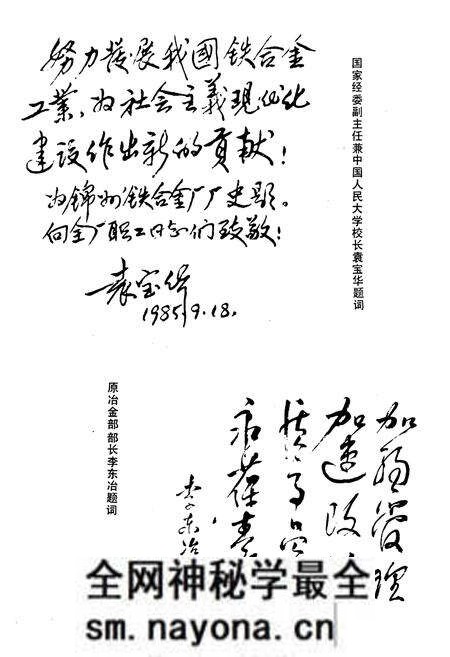 努力發展我國铁合金
工業，为社会主義现代化
建设作出新的貢献！
为锦州铁合金厂厂史题。
向全厂职工同志们致敬！
袁宝华
1985.9.18.
国家经委副主任兼中国人民大学校长袁宝华题词
加强管理
加速改
永葆青
李东冶
原冶金部部长李东冶题词
全网神秘学最全
sm.nayona.cn